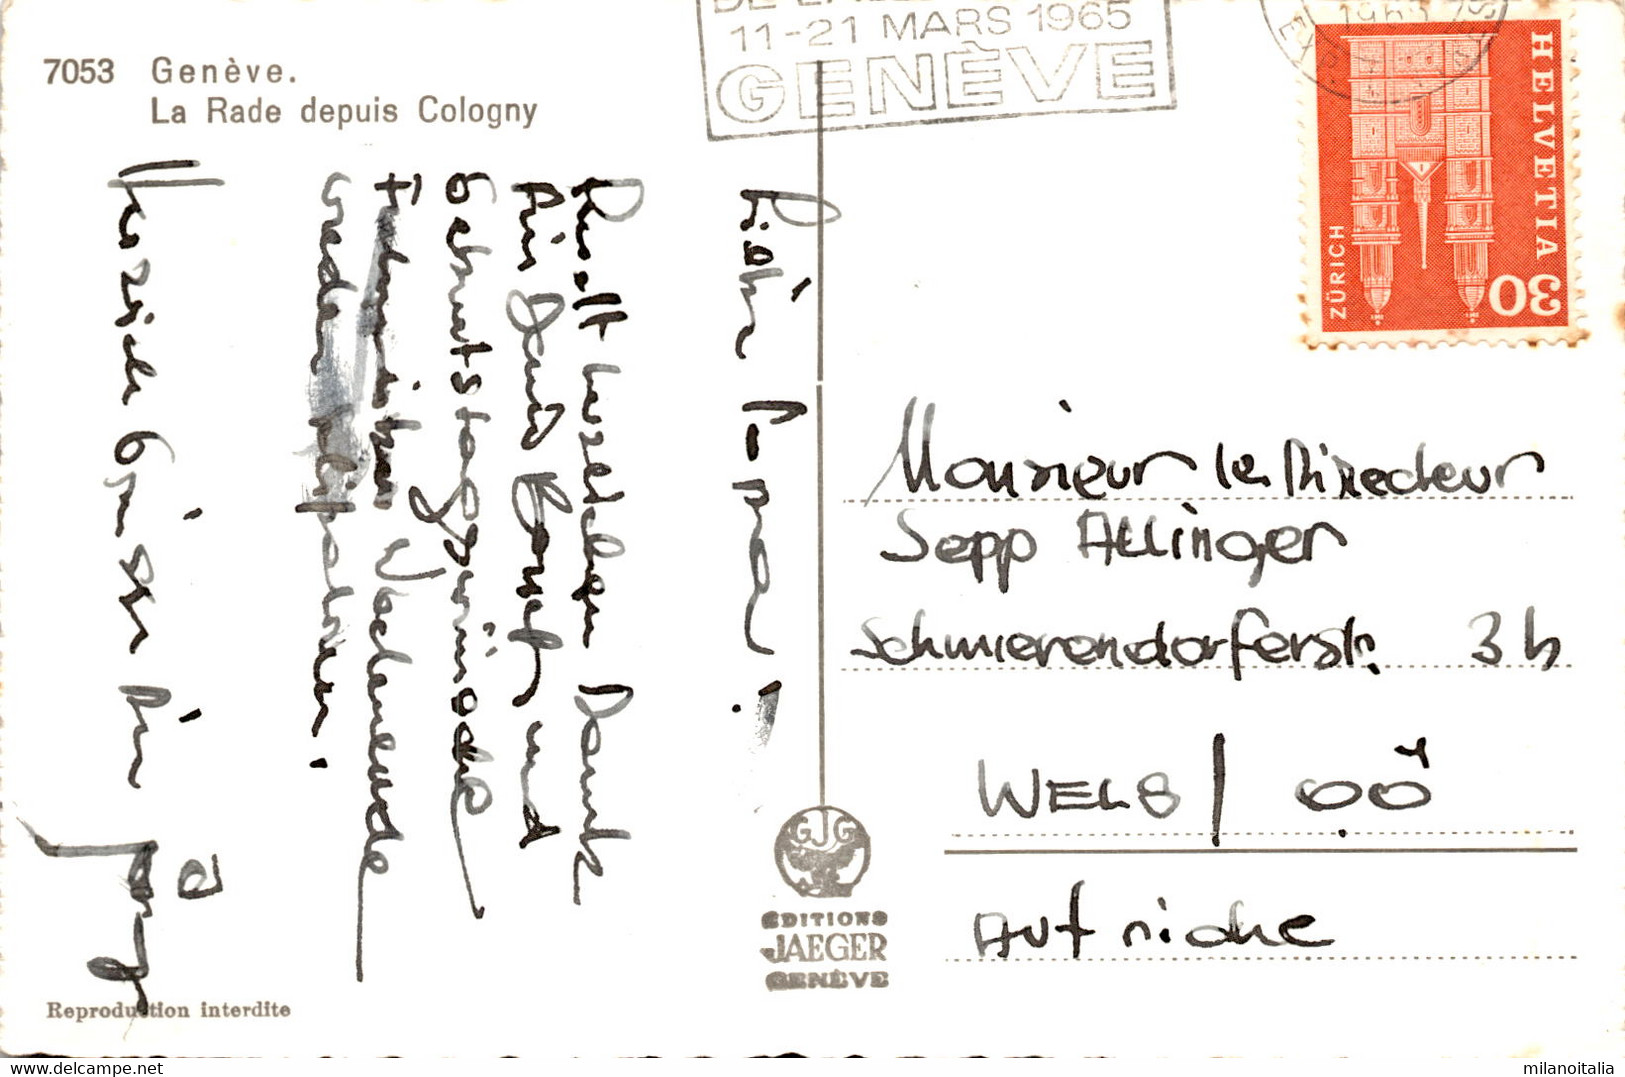 7053 Genève.
La Rade depuis Cologny
11-21 MARS 1965
GENÈVE
HELVETIA
30
ZÜRICH
Lieber Papa!
Recht herzlichen Dank
für Deinen Brief und
Geburtstagswünsche
Wochenende
Herzlich grüßt Dir
Monsieur le Directeur
Sepp Allinger
Schmierendorferstr. 3b
WELS / OÖ
Autriche
GJG
EDITIONS
JAEGER
GENÈVE
Reproduction interdite
milanoitalia
www.delcampe.net